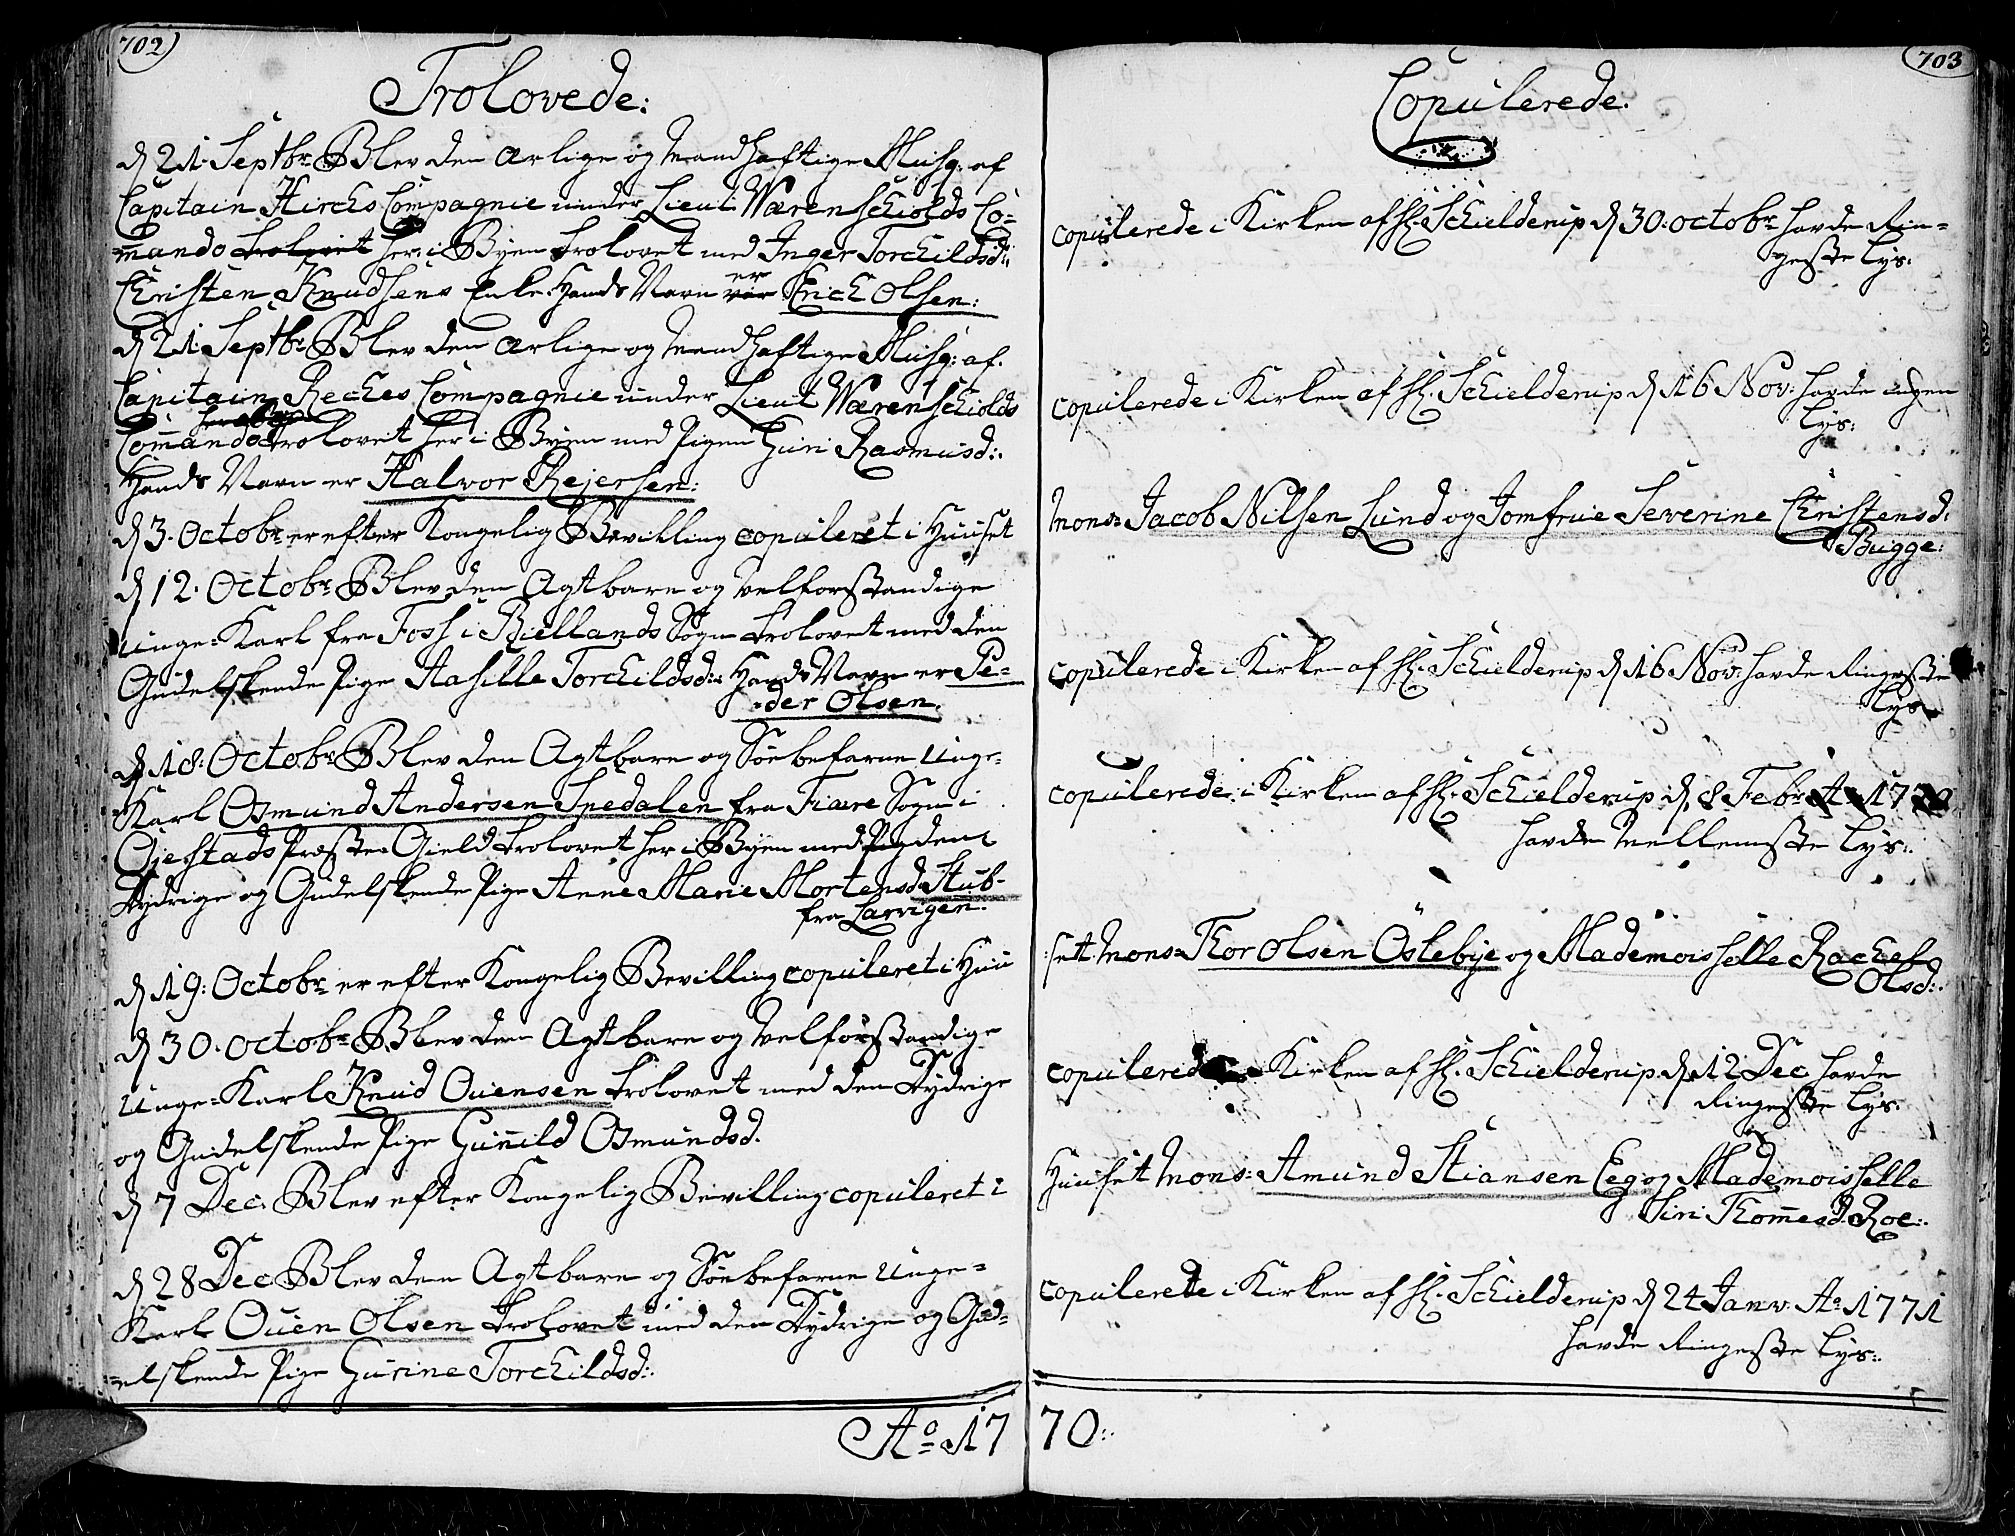 702)
Trolovede:
d 21. Septbr: Blev den ærlige og Mandhaftige Musq: af
Capitain Hirchs Compagnie under Lieut: Wærenschiolds Co-
mando trolovet her i Byen trolovet med Inger Torchildsd:
Christen Knudsens Enke. Hands Navn var er Erich Olsen:
d 21. Septbr: Blev den ærlige og Mandhaftige Musq: af.
Capitain Reches Compagnie under Lieut Wærenschiolds
Commando troloveit her i Byen med Pigen Guri Rasmusd:.
Hands Navn er Halvor Rejersen:
d 3. Octobr: er efter Kongelig Bevilling copuleret i Huuset
d 12. Octobr: Blev den Agtbare og velforstandige
unge-Karl fra Foss i Biellands Sogn trolovet med den
Gudelskende Pige Aasille Torchildsd:. Hands Navn er Pe-
-der Olsen.
d 18: Octobr: Blev den Agtbare og Søebefarne unge-
-Karl Osmund Andersen Spedalen fra Fiære Sogn i
Øjestads Præste-Gield trolovet her i Byen med den
Dydrige og Gudelskende Pige Anne Marie Mortensd. Stub-
fra Larvigen.
d 19: Octobr: er efter Kongelig Bevilling copuleret i Huu
d 30. Octobr: Blev den Agtbare og velforstandige
unge-Karl Knud Ouensen trolovet med den Dydrige
og Gudelskende Pige Gunnild Osmundsd.
d 7 Dec: Blev efter Kongelig Bevilling copuleret i
d 28 Dec: Blev den Agtbare og Søebefarne unge-
Karl Ouen Olsen trolovet med den Dydrige og Gud-
-elskende Pige Gurine Torchildsd:.
Ao. 17
703
Copulerede.
copulerede i Kirken af H. Schielderup d 30. octobr: havde Rin-
geste Lys:
copulerede i Kirken af H. Schielderup d 16 Nov: havde ingen
Lys:
Mons: Jacob Nilsen Lund og Jomfrue Severine Christensd.
Bugge:
copulerede i Kirken af H. Schielderup d 16 Nov: havde Ringeste
Lys
copulerede i Kirken af H. Schielderup d. 8 Febr: A 17
havde Mellemste Lys:.
:sett. Mons: Thor Olsen Östebye og Mademoisselle Rachel
Olsd:.
copulered Kirken af H. Schielderup. d. 12 Dec havde
Ringeste Lys.
Huuset Mons: Amund Stiansen Eeg og Mademoisselle
Siri Thommesd. Roe:.
copulerede i Kirken af H. Schielderup d 24 Janv. Ao 1771
havde Ringeste Lys:.
70:.